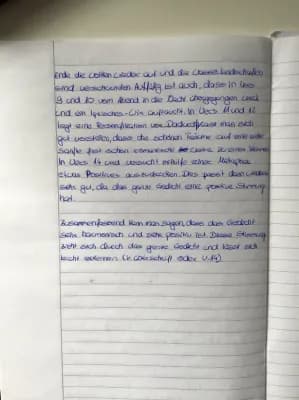 Ende die Wolken wieder auf und die Wasserlandschaften
sind verschwunden. Auffällig ist auch, dass in Vers
9 und 10 vom Abend in die Nacht übergegangen wird
und ein lyrisches-Ich auftaucht. In Vers 11 und 12
liegt eine Personifikation vor. Dadurch kann man sich
gut vorstellen, dass die schönen Träume auf eine sehr
sanfte fast schon
In Vers 14 wird versucht mithilfe einer Metapher
etwas Positives auszudrücken. Dies passt dann wieder
sehr gut, da das ganze Gedicht eine positive Stimmung
hat.
Zusammenfassend kann man sagen, dass das Gedicht
sehr harmonisch und sehr positiv ist. Diese Stimmung
zieht sich durch das ganze Gedicht und lässt sich
leicht erkennen (in Überschrift oder V.14)